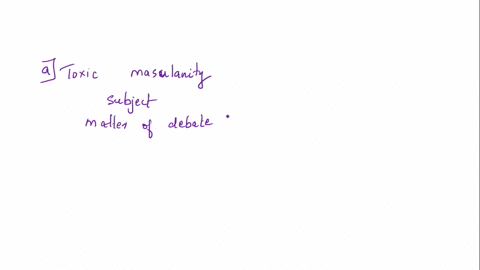 a] Toxic masulanity
subject
matter of debate